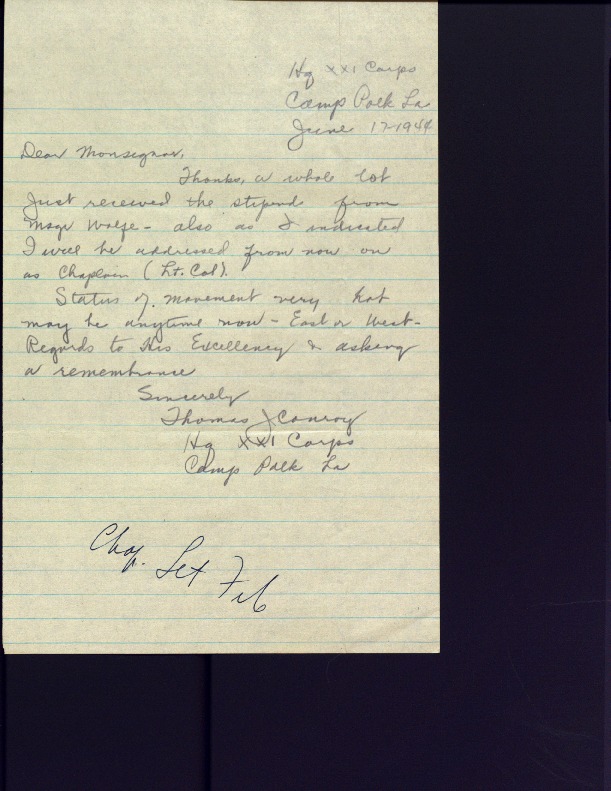 Hq XXI Corps
Camp Polk La
June 17-1944
Dear Monsignor,
Thanks, a whole lot
Just received the stipends from
Msgr Wolfe - also as I indicated
I will be addressed from now on
as Chaplain (Lt. Col).
Status of movement very hot
may be anytime now - East or West -
Regards to His Excellency & asking
a remembrance
Sincerely
Thomas J Conroy
Hq XXI Corps
Camp Polk La
Chap.